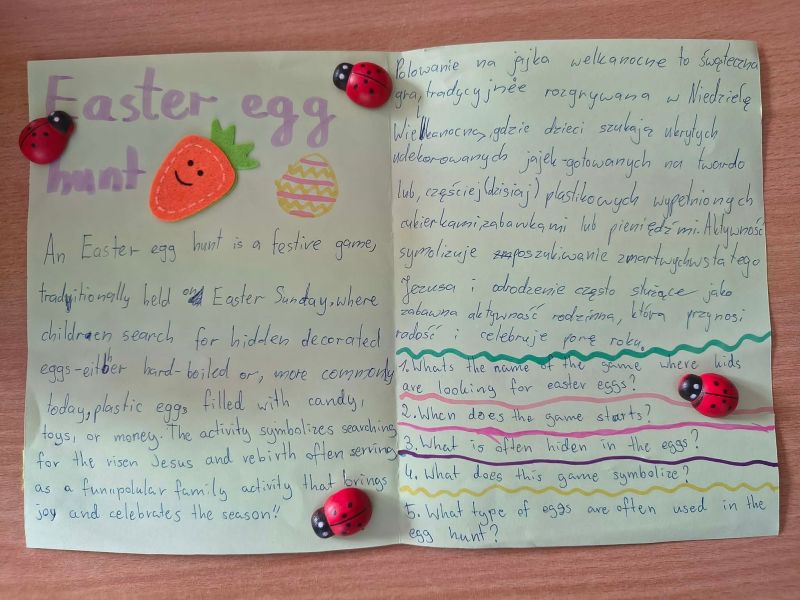 Easter egg
hunt
An Easter egg hunt is a festive game,
tradyitionally held on Easter Sunday, where
children search for hidden decorated
eggs-either hard-boiled or, more commonly
today, plastic eggs filled with candy,
toys, or money. The activity symbolizes searching
for the risen Jesus and rebirth often serving
as a fun, polular family activity that brings
joy and celebrates the season!!
Polowanie na jajka welkanocne to świąteczna
gra, tradycyjnie rozgrywana w Niedzielę
Wielkanocną, gdzie dzieci szukają ukrytych
udekorowanych jajek-gotowanych na twardo
lub, częściej (dzisiaj) plastikowych wypełnionych
cukierkami, zabawkami lub pieniędźmi. Aktywność
symolizuje poszukiwanie zmartwychwstałego
Jezusa i odrodzenie często służące jako
zabawna aktywność rodzinna, która przynosi
radość i celebruje porę roku.
1. Whats the name of the game where kids
are looking for easter eggs?
2. When does the game starts?
3. What is often hiden in the eggs?
4. What does this game symbolize?
5. What type of eggs are often used in the
egg hunt?